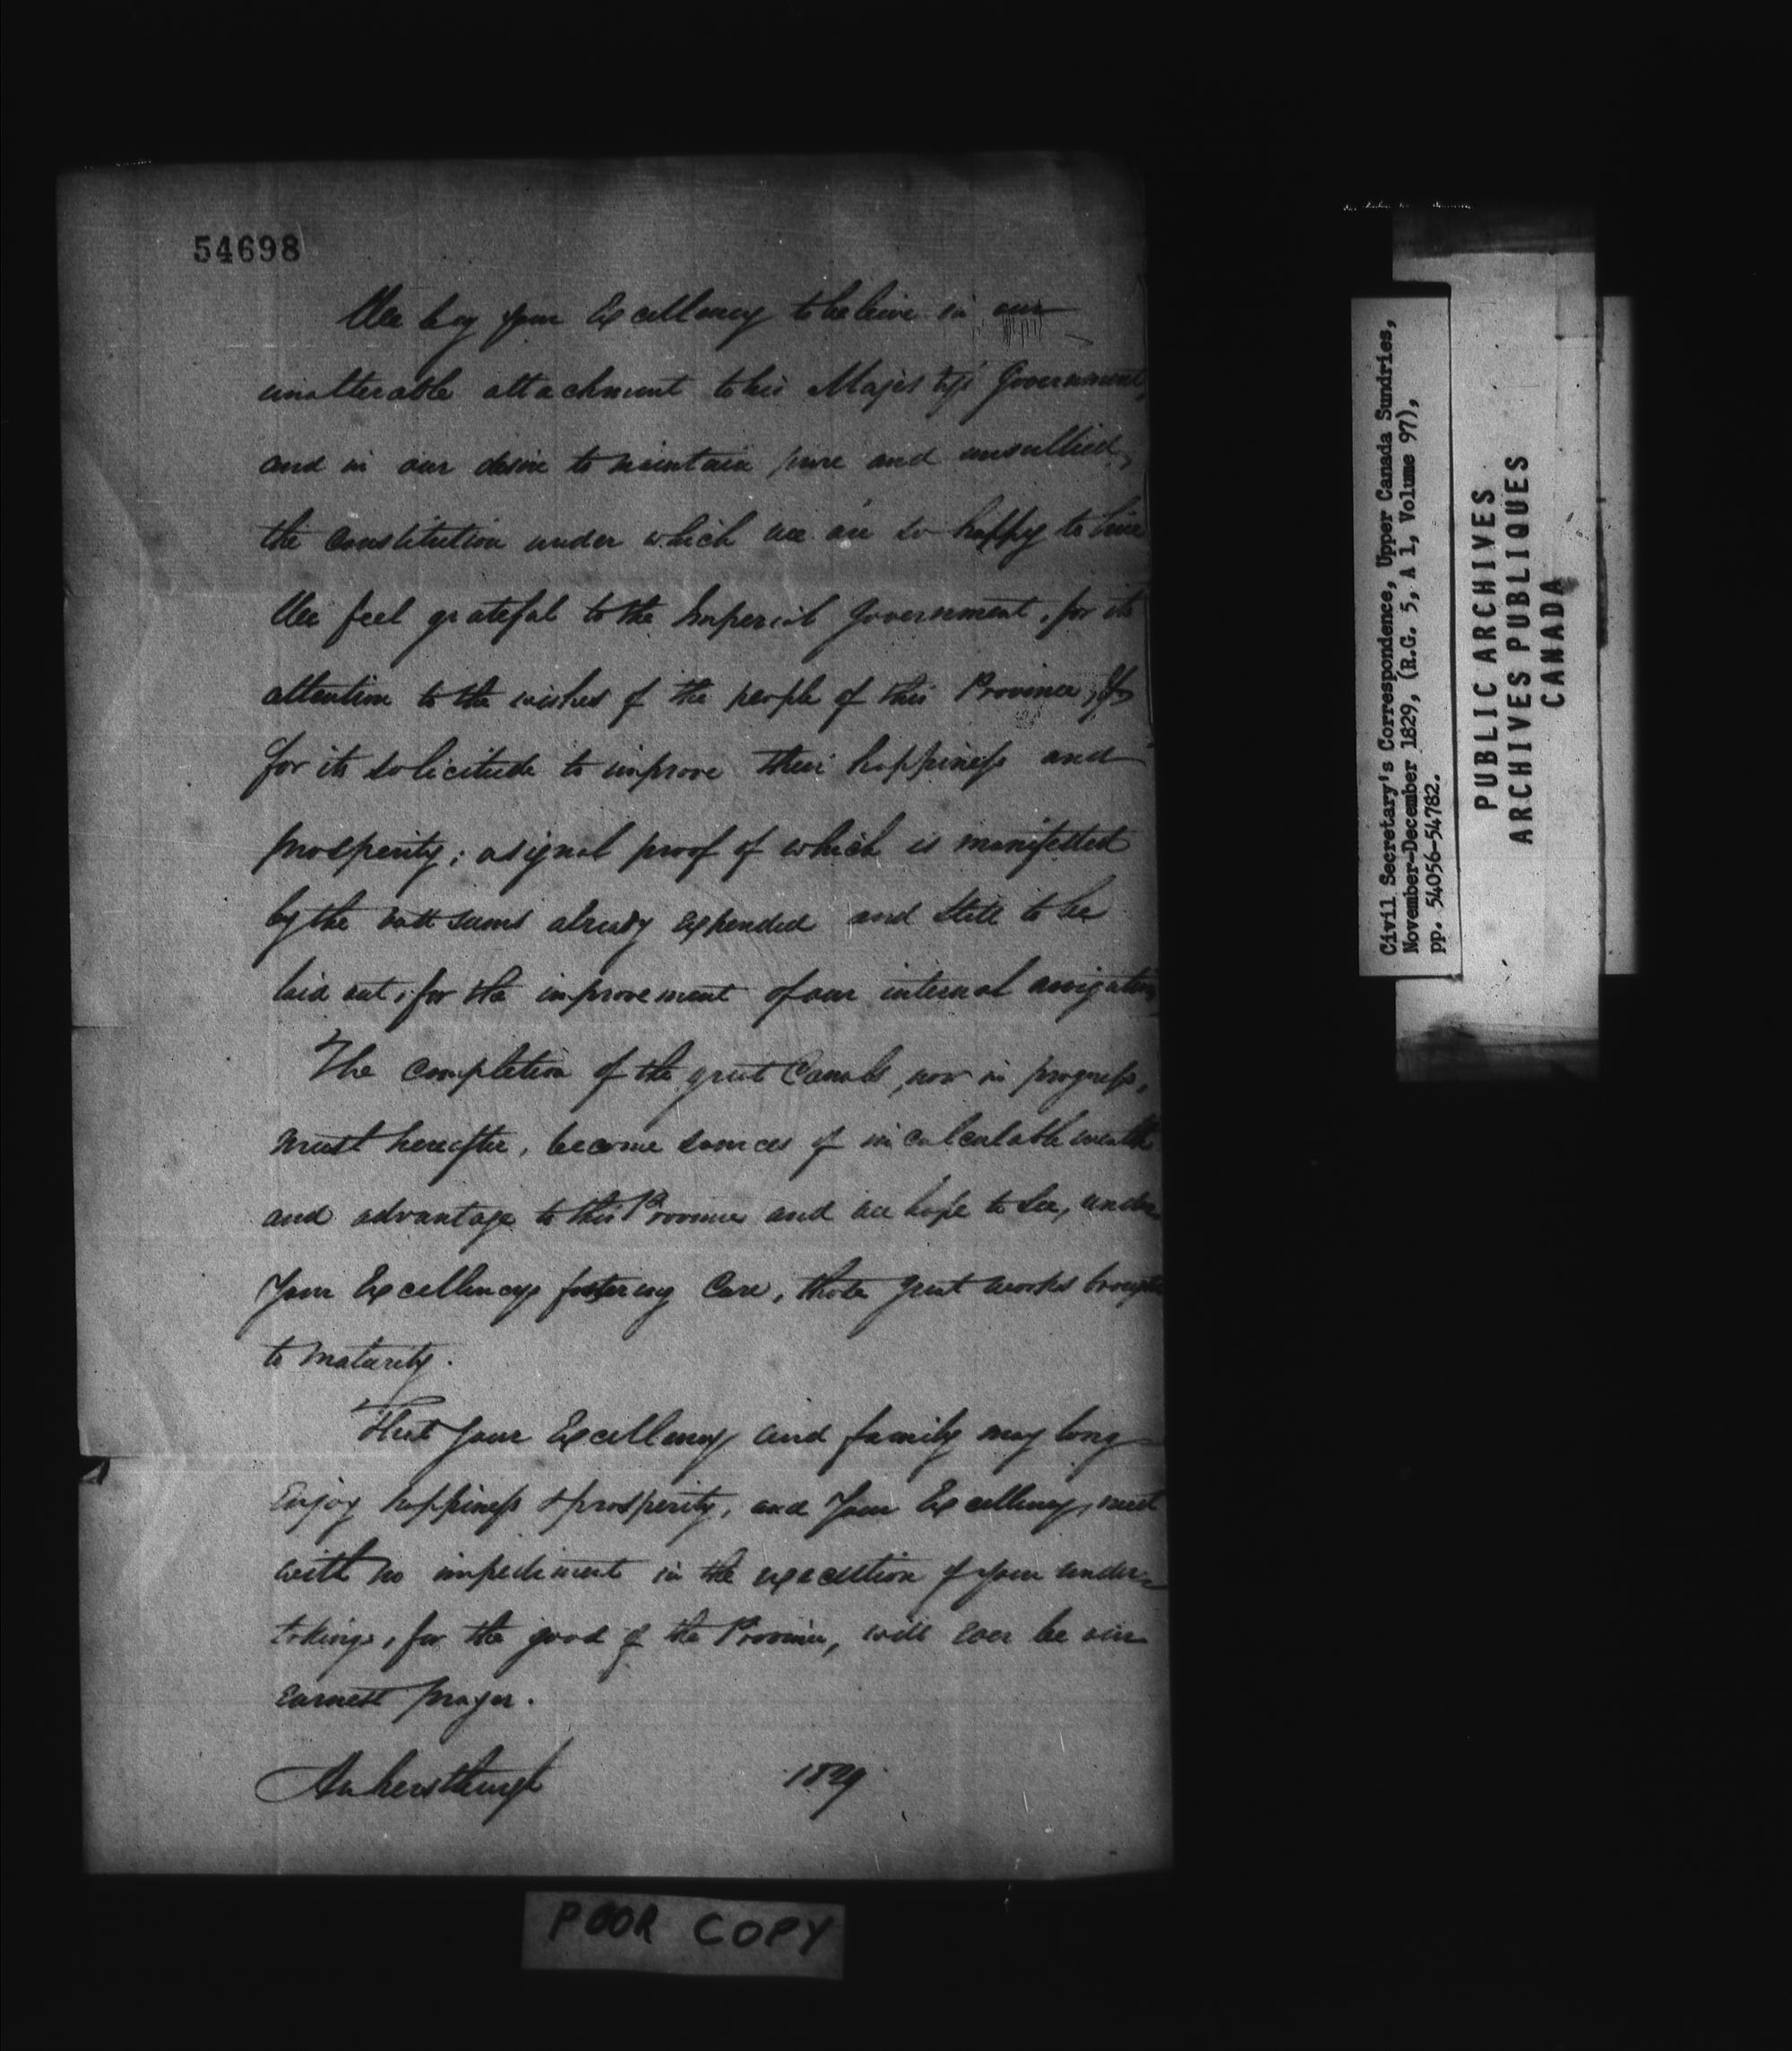 54698
We beg your Excellency to beleive in our
unalterable attachment to his Majesty's Government,
and in our desire to maintain pure and unsullied,
the Constitution under which we are so happy to live
We feel grateful to the Imperial Government, for its
attention to the wishes of the people of this Province, &
for its solicitude to improve their happiness and
prosperity; a signal proof of which is manifested
by the vast sums already expended and still to be
laid out, for the improvement of our internal navigation
The completion of the great Canals, now in progress,
must hereafter, become sources of incalculable wealth
and advantage to this Province and we hope to see, under
Your Excellencys fostering Care, those great works brought
to maturity.
That Your Excellency and family may long
enjoy happiness & prosperity, and Your Excellency, meet
with no impediment in the execution of your under-
takings, for the good of the Province, will ever be our
earnest prayer.
Amherstburgh 1829
POOR COPY
Civil Secretary's Correspondence, Upper Canada Sundries,
November-December 1829, (R.G. 5, A 1, Volume 97),
pp. 54056-54782.
PUBLIC ARCHIVES
ARCHIVES PUBLIQUES
CANADA